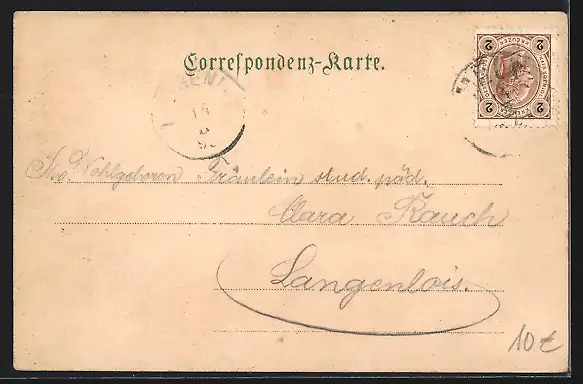 Correspondenz-Karte.
2 2
KREUZER
2 2
Wohlgeboren Fräulein stud. päd.
Clara Rauch
Langenlois.
10€